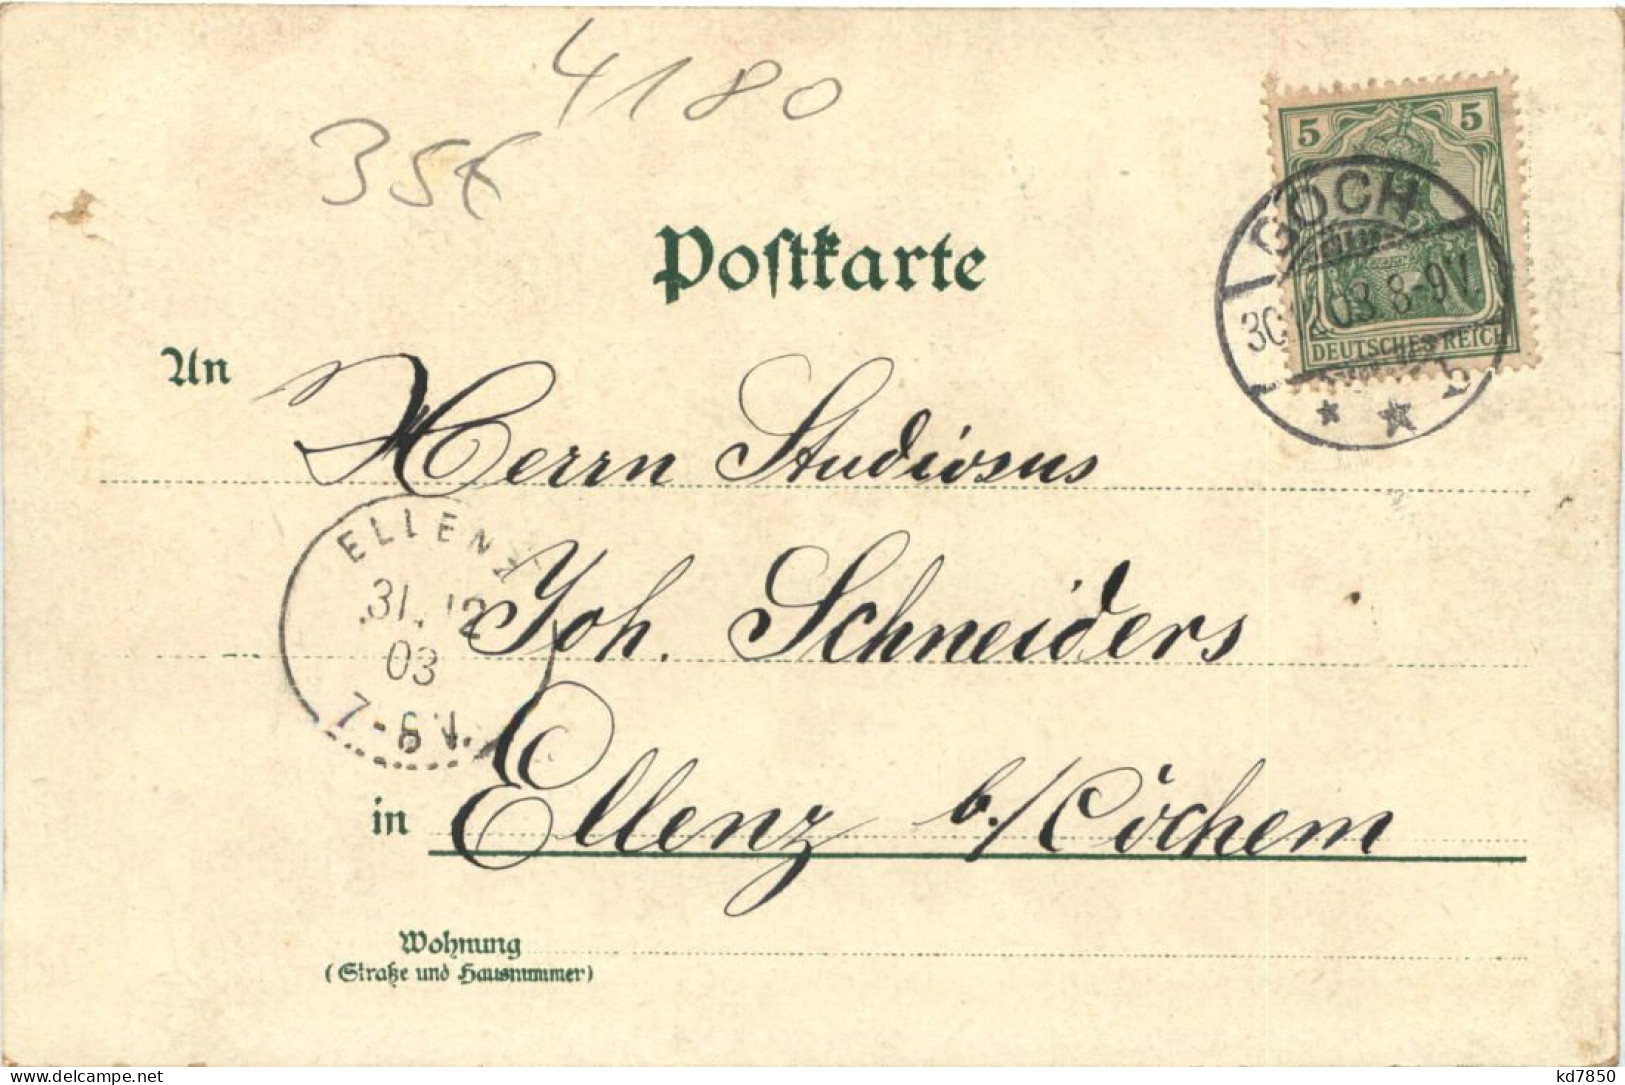 4180
35€
Postkarte
5 5
GOCH
30.12.03 8-9V.
DEUTSCHES REICH
* *
An
Herrn Studiosus
ELLENZ
31.12
03
7-8V.
Joh. Schneiders
in Ellenz b./Cochem
Wohnung
(Straße und Hausnummer)
www.delcampe.net
kd7850